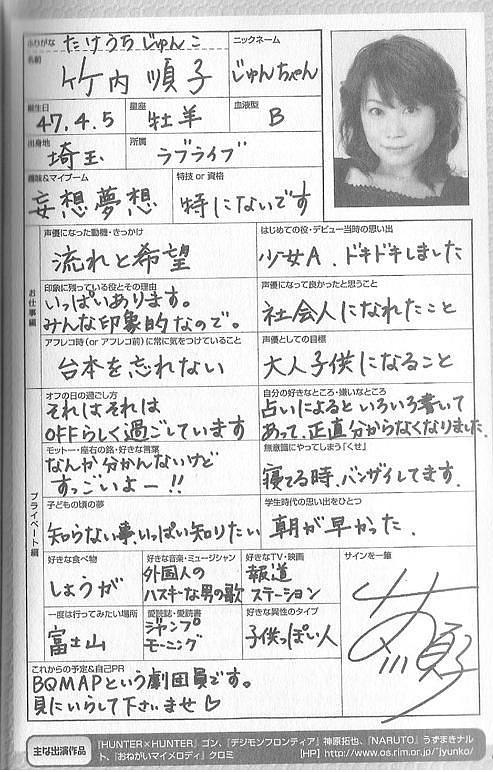 ふりがな たけうちじゅんこ
ニックネーム
名前 竹内順子
じゅんちゃん
誕生日 47.4.5
星座 牡羊
血液型 B
出身地 埼玉
所属 ラブライブ
趣味&マイブーム
妄想夢想
特技 or 資格
特にないです
お仕事編
声優になった動機・きっかけ
流れと希望
はじめての役・デビュー当時の思い出
少女A、ドキドキしました
印象に残っている役とその理由
いっぱいあります。
みんな印象的なので。
声優になって良かったと思うこと
社会人になれたこと
アフレコ時(or アフレコ前)に常に気をつけていること
台本を忘れない
声優としての目標
大人子供になること
プライベート編
オフの日の過ごし方
それはそれは
OFFらしく過ごしています
自分の好きなところ・嫌いなところ
占いによるといろいろ書いて
あって、正直分からなくなりました。
モットー・座右の銘・好きな言葉
なんか分かんないけど
すっごいよー!!
無意識にやってしまう「くせ」
寝てる時、バンザイしてます.
子どもの頃の夢
知らない事、いっぱい知りたい
学生時代の思い出をひとつ
朝が早かった.
好きな食べ物
しょうが
好きな音楽・ミュージシャン
外国人の
ハスキーな男の歌
好きなTV・映画
報道
ステーション
サインを一筆
一度は行ってみたい場所
富士山
愛読誌・愛読書
ジャンプ
モーニング
好きな異性のタイプ
子供っぽい人
これからの予定&自己PR
BQMAPという劇団員です。
見にいらして下さいませ♡
主な出演作品
『HUNTER×HUNTER』ゴン、『デジモンフロンティア』神原拓也、『NARUTO』うずまきナル
ト、『おねがいマイメロディ』クロミ
[HP] http://www.os.rim.or.jp/~jyunko/